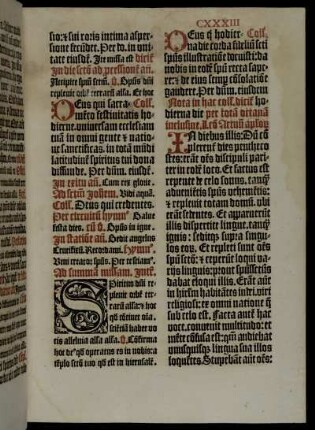 CXXXIII
sio: & sui roris intima asper-
sione fecūdet. Per do. in uni-
tate eiusdē. In missa ut dicit̄
In die sctō ad
Recipite spūm sctm. Spūs dn̄i
repleuit orbē terrarū alla. Et hoc
DEus qui sacra- Coll.
mēto festiuitatis ho
dierne. uniuersam ecclesiam
tuā in omni gente & natio-
ne sanctificas. in totā mūdi
latitudinē spiritus tui dona
diffunde. Per dūm. eiusdē.
In exitu añ. Cum rex glorie.
Ad sctūm Johem. Vidi aquā.
Coll. Deus qui credentes.
Per circuitū hymn⁹ Salue
festa dies. cū Spūs in igne.
In statiōe añ. Sedit angelus
Crucifixū. Recordamī. Hymn⁹.
Veni creator spūs. Per
Ad summā missam. Intr̄.
SPiritus dn̄i re-
pleuit orbē ter-
rarū alla: & hoc
qd̄ cōtinet oīa
sciētiā habet uo
cis alleluia alla alla. Cōfirma
hoc de⁹ qd̄ operatus es in nobis: a
tēplo sctō tuo qd̄ est in hierusalē.
DEus q hodier- Coll.
na die corda fideliū scī
spūs illustratiōe docuisti: da
nobis in eodē spū recta sape-
re: & de eius semp cōsolatiōe
gaudere. Per dūm. eiusdem
Nota in hac coll. dicit̄ ho
dierna die per totā
inclusiue. Actuū aplōꝛ
IN diebus illis: Dū cō
plerent̄ dies penthecos
stes: erāt oēs discipuli pari-
ter in eodē loco. Et factus est
repente de celo sonus. tanq̄
aduenietis spūs uehementis:
& repleuit totam domū. ubi
erāt sedentes. Et apparuerūt
illis dispertite lingue. tanq̄
ignis: seditq̄ supra singu-
los eoꝛ. Et repleti sunt oēs
spū sctō: & ceperūt loqui va-
riis linguis: prout spūssctūs
dabat eloqui illis. Erāt autē
in hierlm habitātes iudei. uiri
religiosi: ex omni natione q̄
sub celo est. Facta autē hac
voce. conuenit multitudo: et
mēte cōfusa est: qm̄ audiebat
unusquisq̄ lingua sua illos
loquētes. Stupebāt autē oēs: